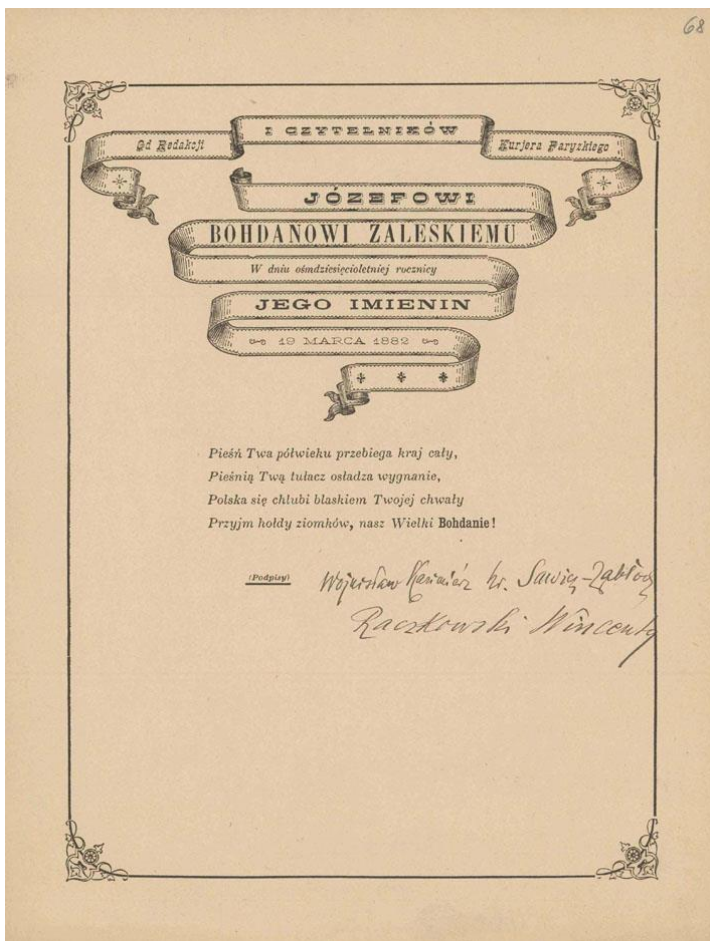 68
Od Redakcji I CZYTELNIKÓW Kurjera Paryzkiego
JÓZEFOWI
BOHDANOWI ZALESKIEMU
W dniu ośmdziesięcioletniej rocznicy
JEGO IMIENIN
19 MARCA 1882
Pieśń Twa półwieku przebiega kraj cały,
Pieśnią Twą tułacz osładza wygnanie,
Polska się chlubi blaskiem Twojej chwały
Przyjm hołdy ziomków, nasz Wielki Bohdanie!
(Podpisy) Wojnisław Kazimiérz hr. Sawicz-Zabłoc
Raczkowski Wincenty